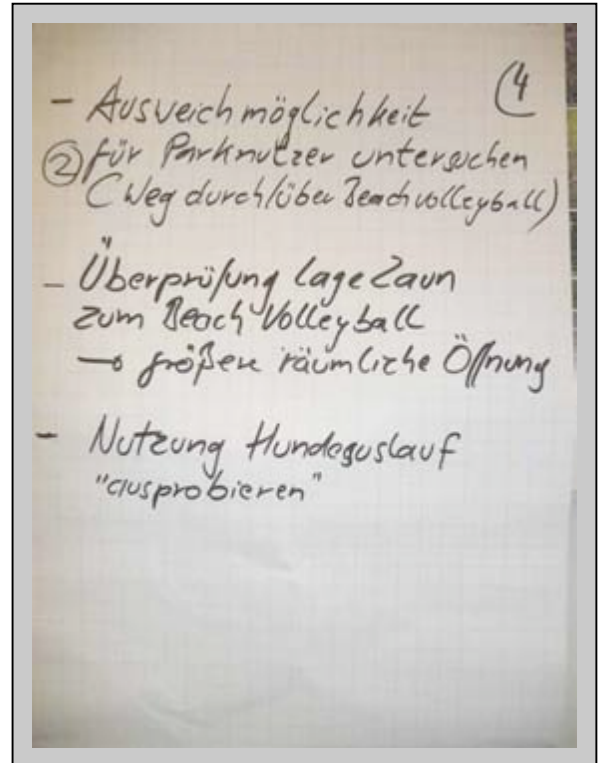 (4
- Ausweichmöglichkeit
② für Parknutzer untersuchen
(Weg durch/über Beachvolleyball)
- Überprüfung Lage Zaun
zum Beach Volleyball
→ größere räumliche Öffnung
- Nutzung Hundeauslauf
"ausprobieren"